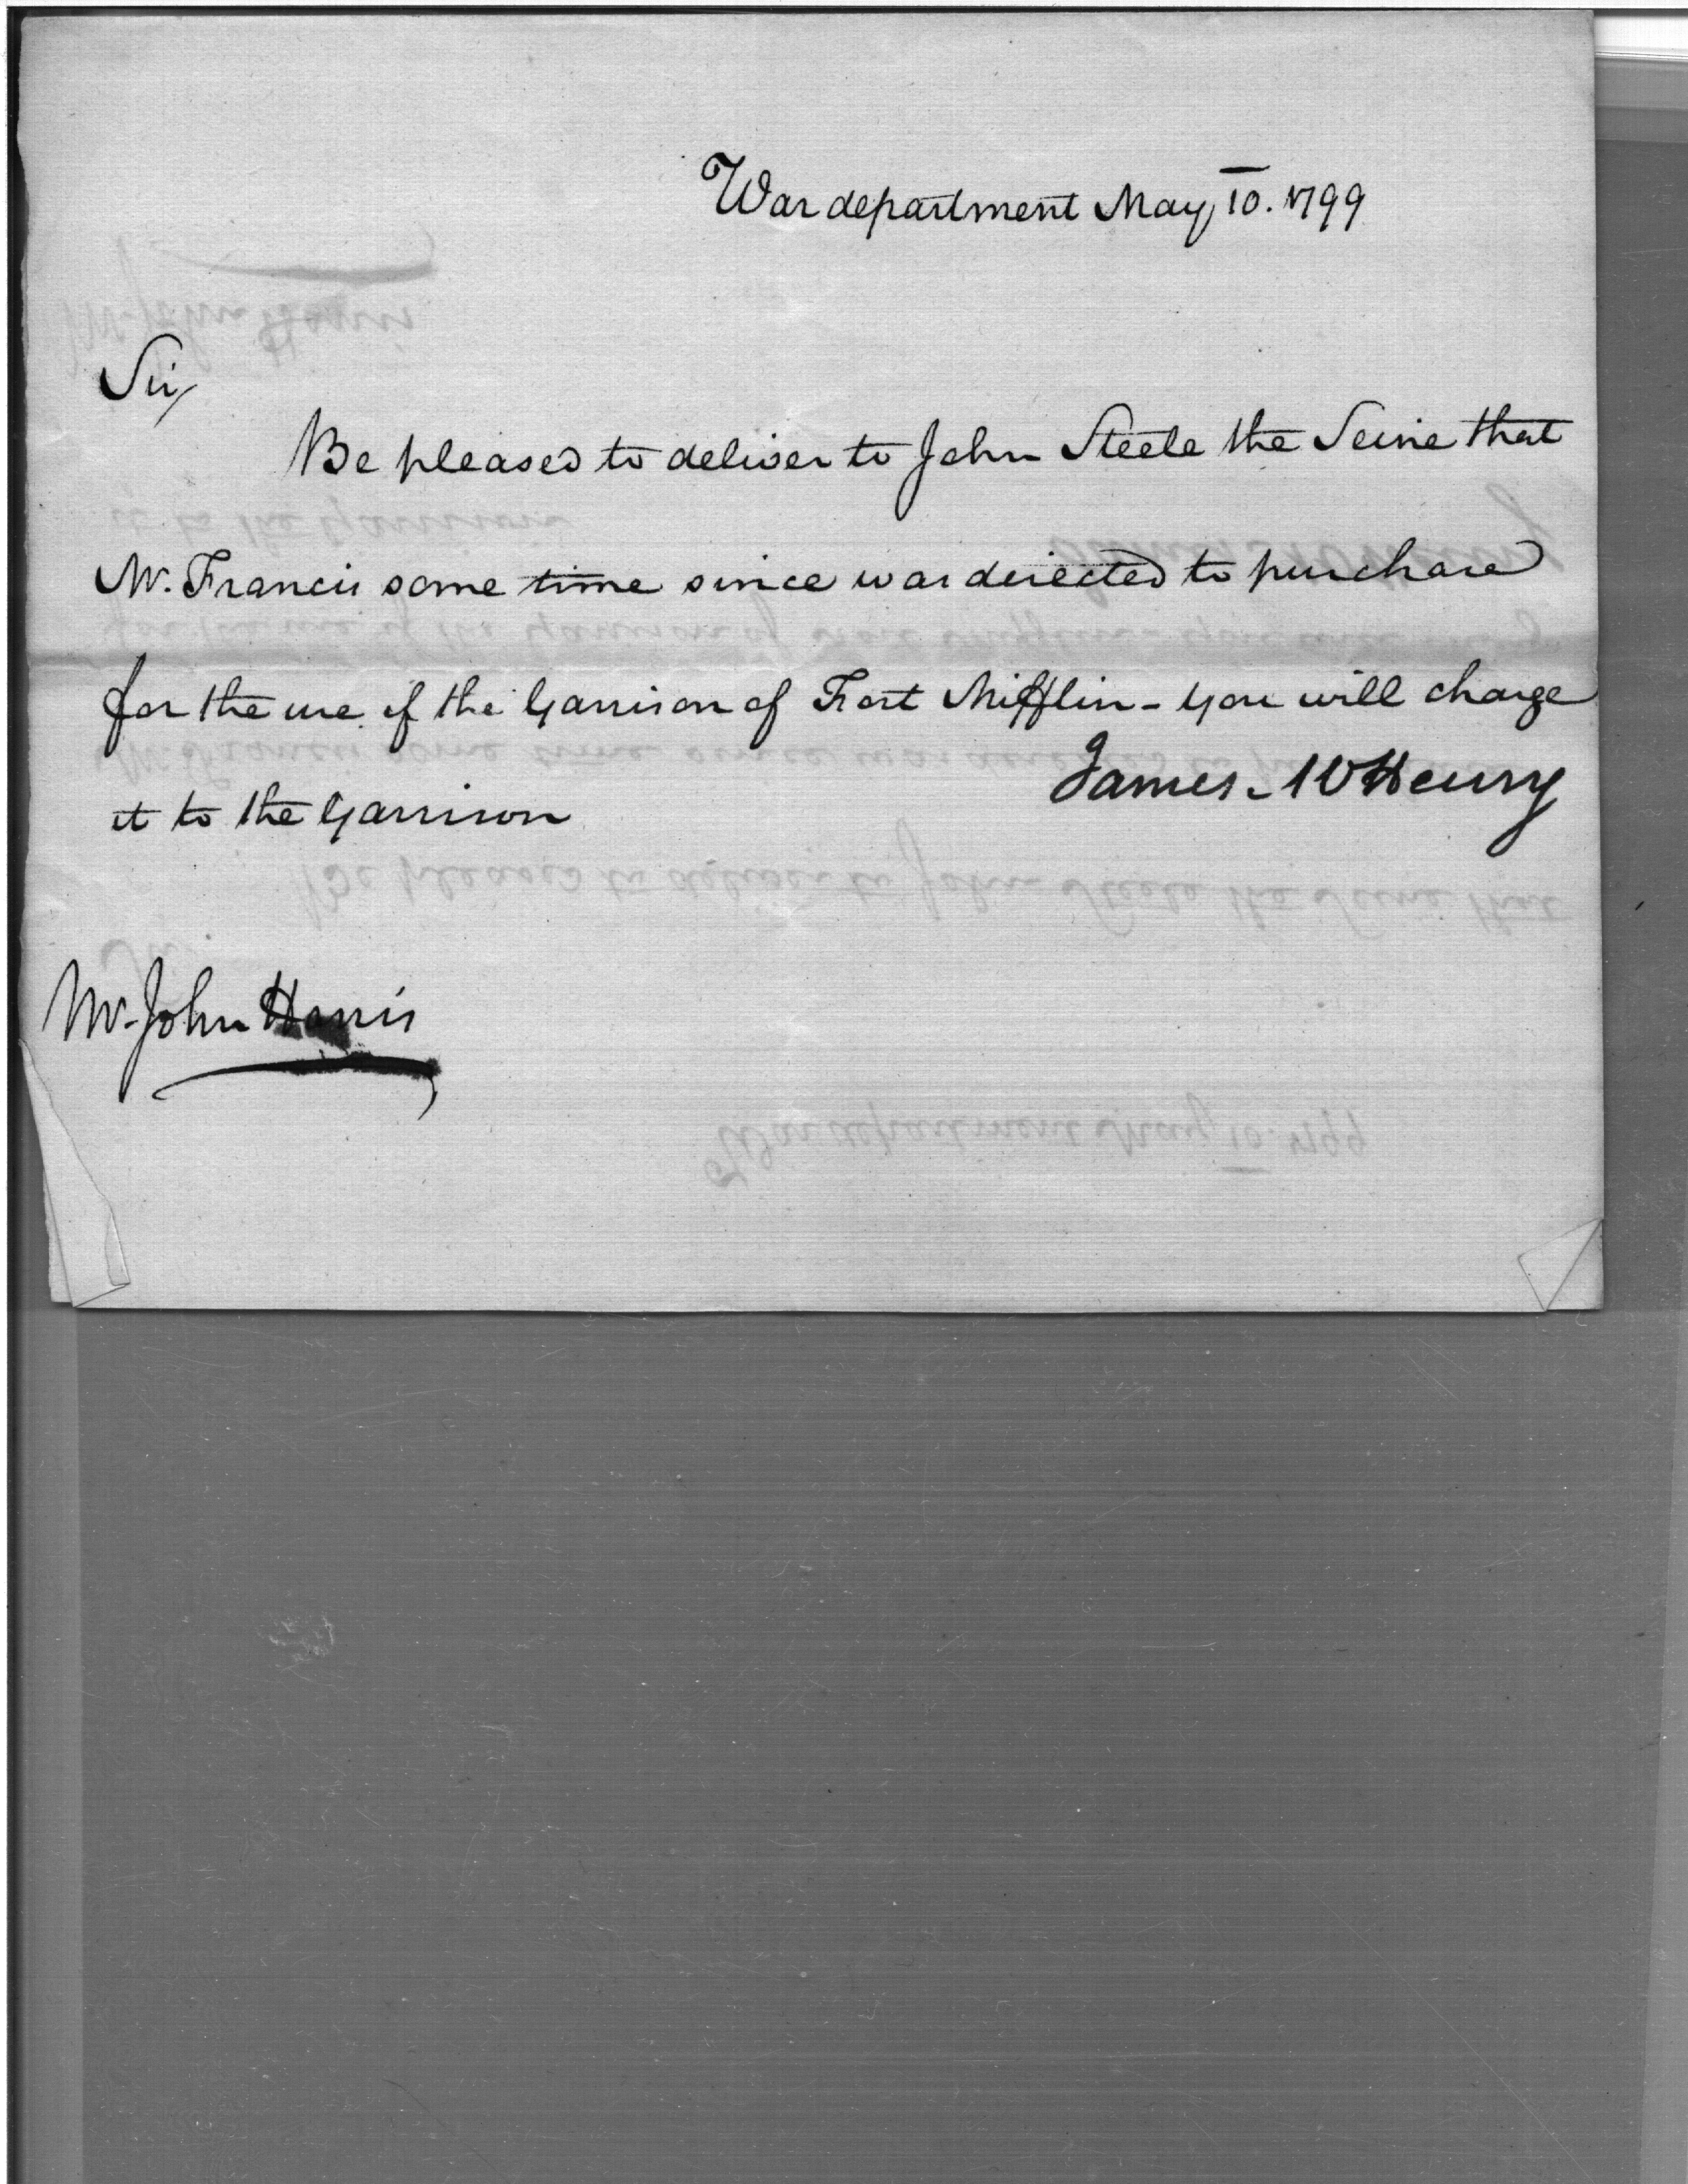 War department May 10. 1799
Sir,
Be pleased to deliver to John Steele the Seine that
Mr. Francis some time since was directed to purchase
for the use of the Garrison of Fort Mifflin - you will charge
it to the Garrison
James McHenry
Mr. John Harris